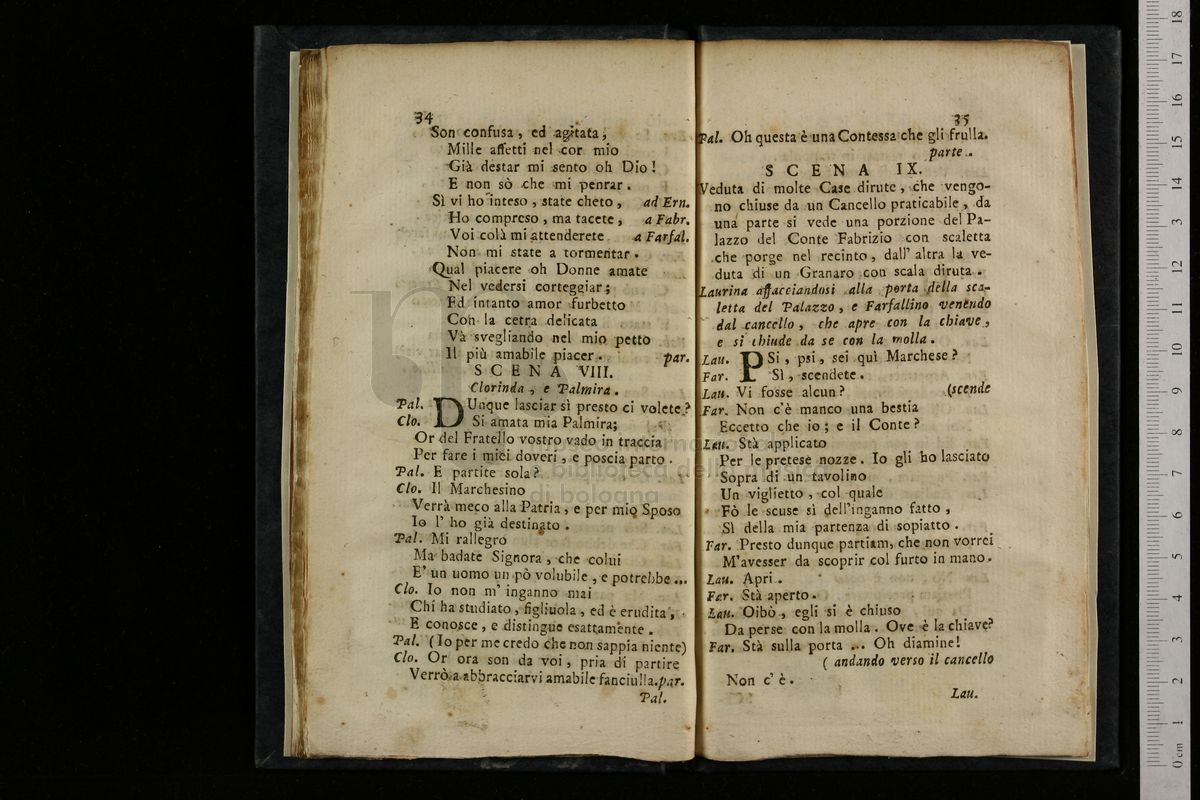 34
Son confusa, ed agitata,
Mille affetti nel cor mio
Già destar mi sento oh Dio!
E non sò che mi penrar.
Sì vi ho inteso, state cheto, ad Ern.
Ho compreso, ma tacete, a Fabr.
Voi colà mi attenderete a Farfal.
Non mi state a tormentar.
Qual piacere oh Donne amate
Nel vedersi corteggiar;
Ed intanto amor furbetto
Con la cetra delicata
Và svegliando nel mio petto
Il più amabile piacer. par.
SCENA VIII.
Clorinda, e Palmira.
Pal. DUnque lasciar sì presto ci volete?
Clo. Si amata mia Palmira;
Or del Fratello vostro vado in traccia
Per fare i miei doveri, e poscia parto.
Pal. E partite sola?
Clo. Il Marchesino
Verrà meco alla Patria, e per mio Sposo
Io l' ho già destinato.
Pal. Mi rallegro
Ma badate Signora, che colui
E' un uomo un pò volubile, e potrebbe...
Clo. Io non m' inganno mai
Chi ha studiato, figliuola, ed è erudita,
E conosce, e distingue esattamente.
Pal. (Io per me credo che non sappia niente)
Clo. Or ora son da voi, pria di partire
Verrò a abbracciarvi amabile fanciulla. par.
Pal.
35
Pal. Oh questa è una Contessa che gli frulla.
parte.
SCENA IX.
Veduta di molte Case dirute, che vengo-
no chiuse da un Cancello praticabile, da
una parte si vede una porzione del Pa-
lazzo del Conte Fabrizio con scaletta
che porge nel recinto, dall' altra la ve-
duta di un Granaro con scala diruta.
Laurina affacciandosi alla porta della sca-
letta del Palazzo, e Farfallino venendo
dal cancello, che apre con la chiave,
e si chiude da se con la molla.
Lau. PSi, psi, sei quì Marchese?
Far. Sì, scendete.
Lau. Vi fosse alcun? (scende
Far. Non c'è manco una bestia
Eccetto che io; e il Conte?
Lau. Stà applicato
Per le pretese nozze. Io gli ho lasciato
Sopra di un tavolino
Un viglietto, col quale
Fò le scuse sì dell'inganno fatto,
Sì della mia partenza di sopiatto.
Far. Presto dunque partiam, che non vorrei
M'avesser da scoprir col furto in mano.
Lau. Apri.
Far. Stà aperto.
Lau. Oibò, egli si è chiuso
Da perse con la molla. Ove è la chiave?
Far. Stà sulla porta ... Oh diamine!
( andando verso il cancello
Non c' è.
Lau.
biblioteca della musica
di bologna
0 cm 1 2 3 4 5 6 7 8 9 10 11 12 13 14 15 16 17 18